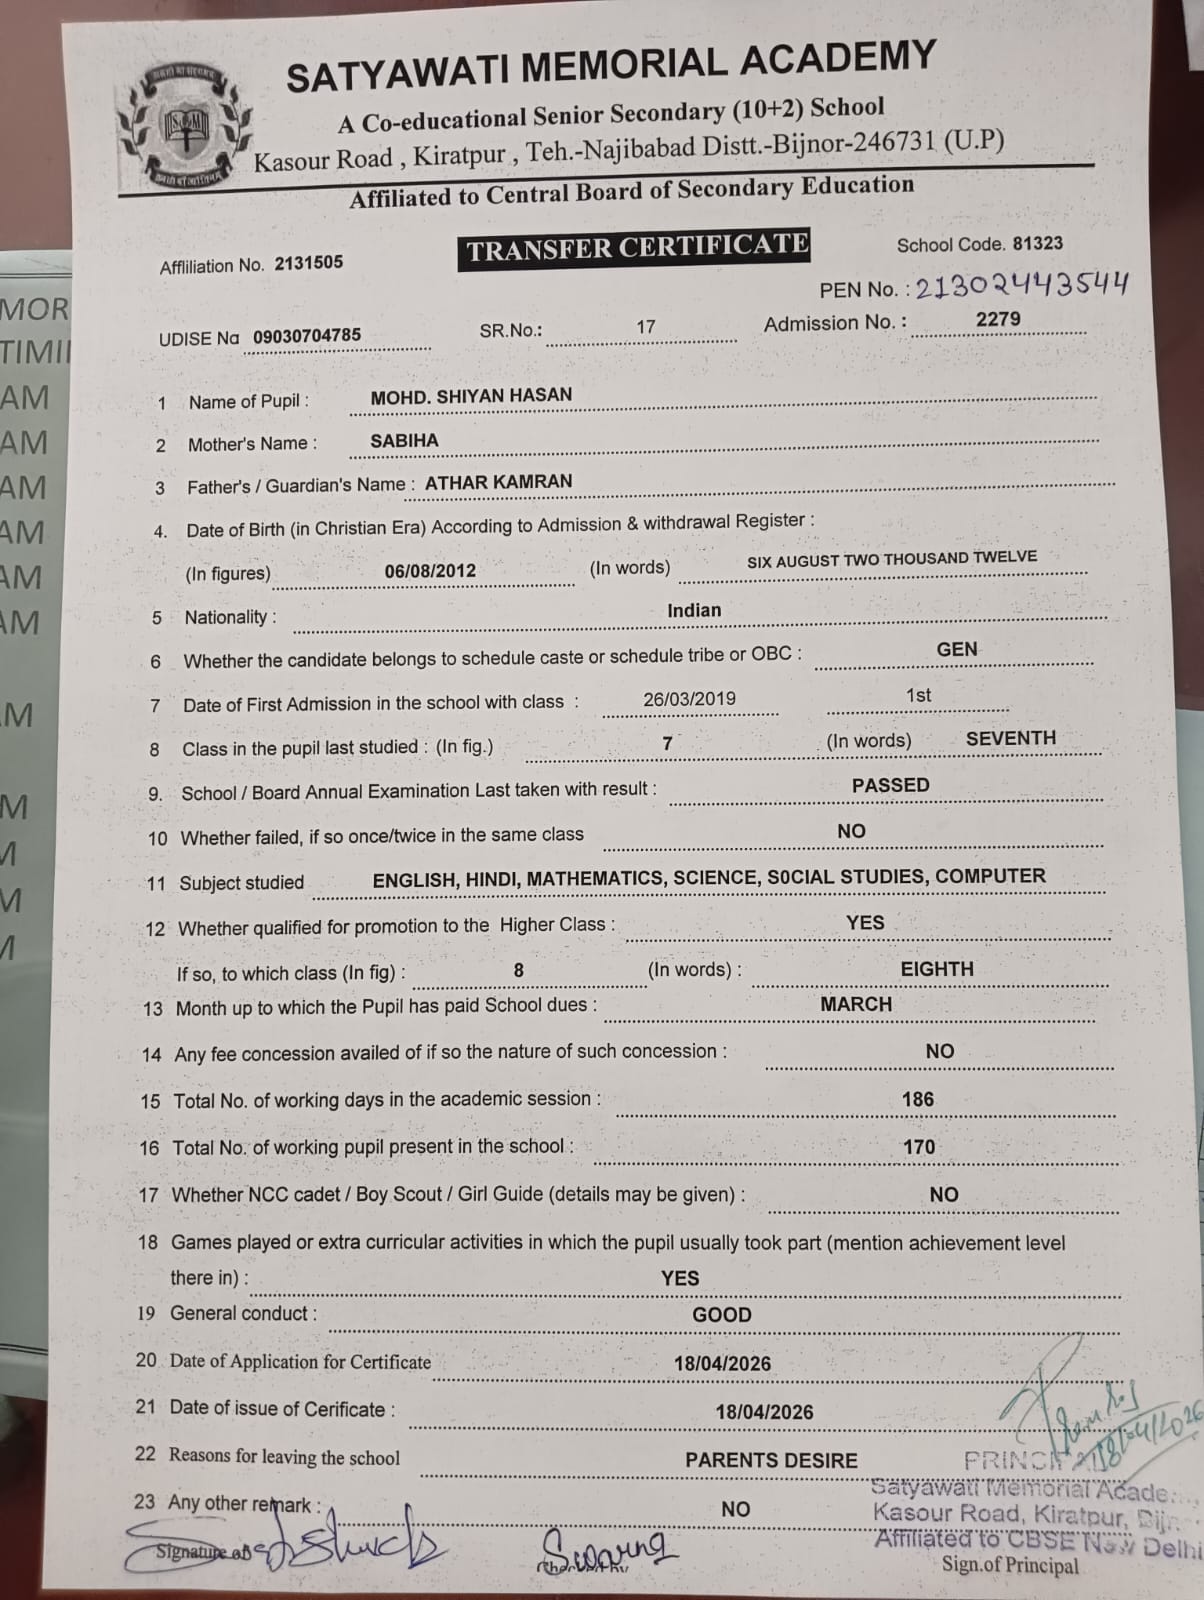 SATYAWATI MEMORIAL ACADEMY
A Co-educational Senior Secondary (10+2) School
Kasour Road , Kiratpur , Teh.-Najibabad Distt.-Bijnor-246731 (U.P)
Affiliated to Central Board of Secondary Education
TRANSFER CERTIFICATE
Affliliation No. 2131505
School Code. 81323
PEN No. : 21302443544
UDISE No 09030704785 SR.No.: 17 Admission No. : 2279
1 Name of Pupil : MOHD. SHIYAN HASAN
2 Mother's Name : SABIHA
3 Father's / Guardian's Name : ATHAR KAMRAN
4. Date of Birth (in Christian Era) According to Admission & withdrawal Register :
(In figures) 06/08/2012 (In words) SIX AUGUST TWO THOUSAND TWELVE
5 Nationality : Indian
6 Whether the candidate belongs to schedule caste or schedule tribe or OBC : GEN
7 Date of First Admission in the school with class : 26/03/2019 1st
8 Class in the pupil last studied : (In fig.) 7 (In words) SEVENTH
9. School / Board Annual Examination Last taken with result : PASSED
10 Whether failed, if so once/twice in the same class NO
11 Subject studied ENGLISH, HINDI, MATHEMATICS, SCIENCE, S0CIAL STUDIES, COMPUTER
12 Whether qualified for promotion to the Higher Class : YES
If so, to which class (In fig) : 8 (In words) : EIGHTH
13 Month up to which the Pupil has paid School dues : MARCH
14 Any fee concession availed of if so the nature of such concession : NO
15 Total No. of working days in the academic session : 186
16 Total No. of working pupil present in the school : 170
17 Whether NCC cadet / Boy Scout / Girl Guide (details may be given) : NO
18 Games played or extra curricular activities in which the pupil usually took part (mention achievement level
there in) : YES
19 General conduct : GOOD
20 Date of Application for Certificate 18/04/2026
21 Date of issue of Cerificate : 18/04/2026
18/04/2026
22 Reasons for leaving the school PARENTS DESIRE
Satyawati Memorial Acade
23 Any other remark : NO
Kasour Road, Kiratpur,
Affiliated to CBSE New Delhi
Signature of
Swarna
Sign.of Principal
MOR
TIMI
AM
AM
AM
AM
AM
AM
M
M
M
M
M